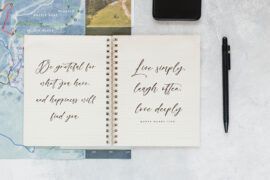 Be grateful for
what you have,
and happiness will
find you.
Live simply,
laugh often,
love deeply.